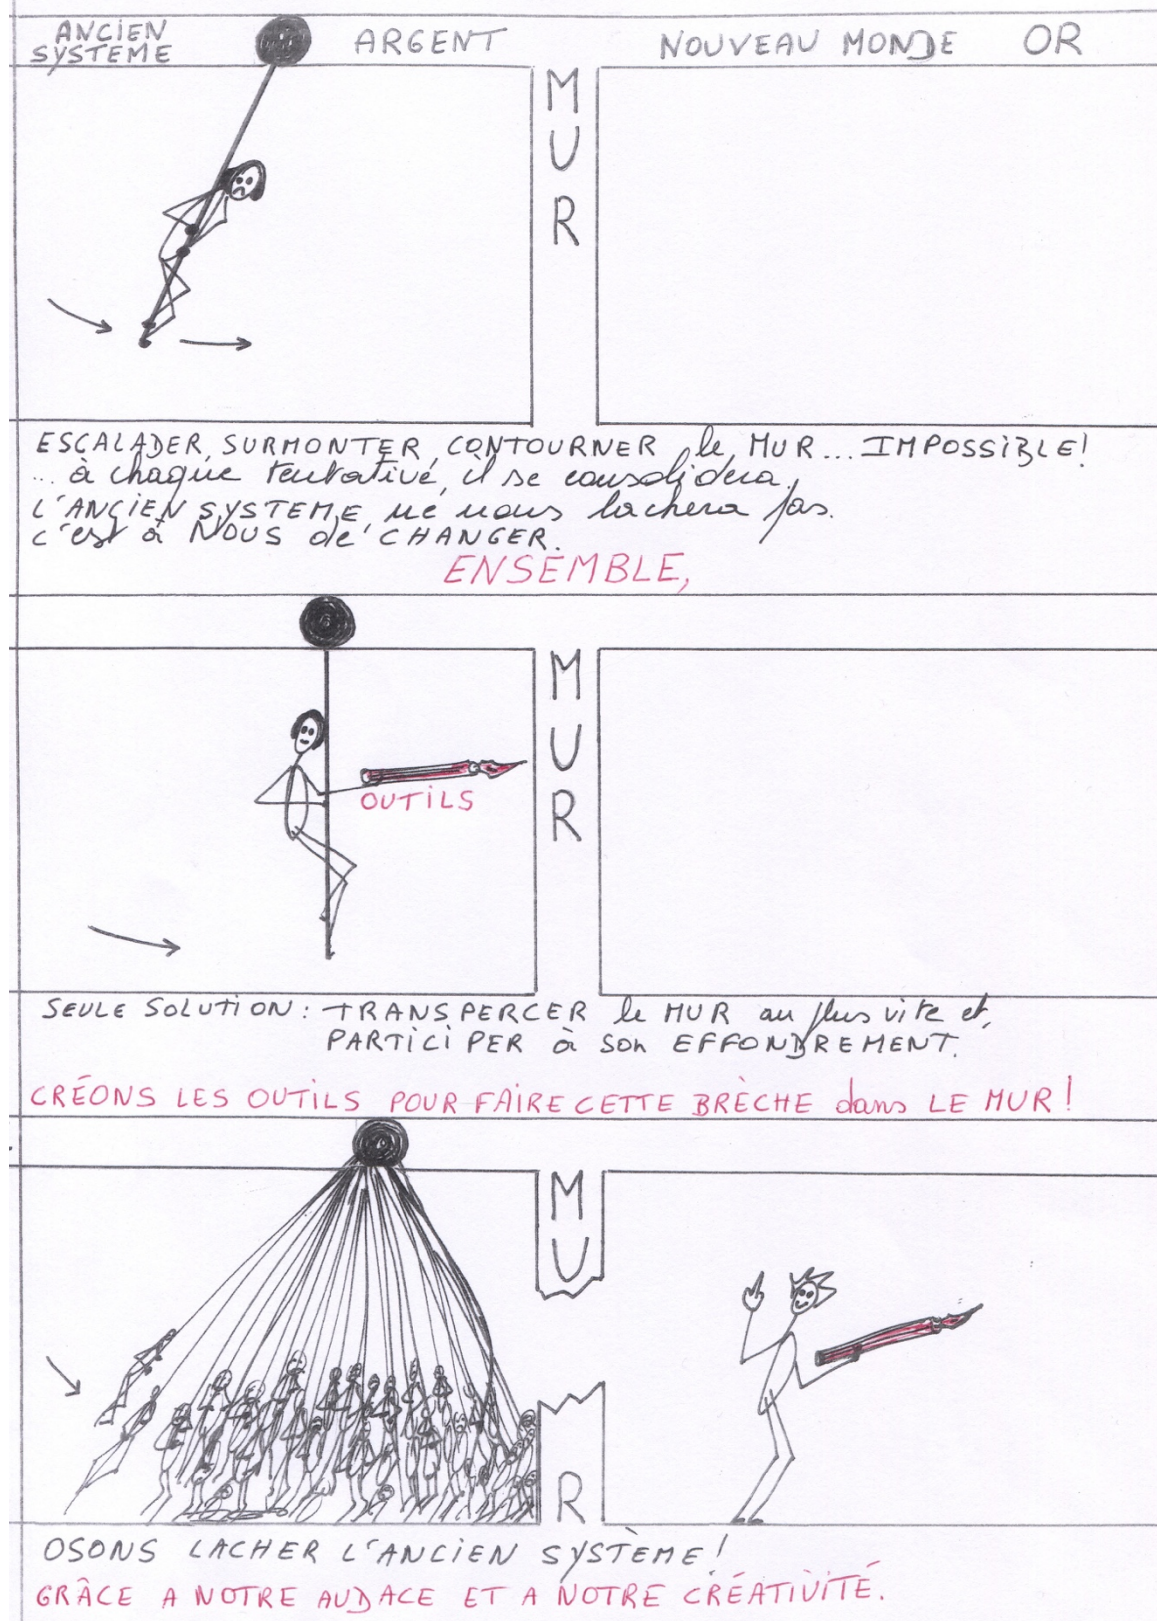 ANCIEN
SYSTEME
ARGENT
NOUVEAU MONDE OR
MUR
ESCALADER, SURMONTER, CONTOURNER le MUR... IMPOSSIBLE!
... à chaque tentative, il se consolidera.
L'ANCIEN SYSTEME, ne nous lachera pas.
C'est à NOUS de CHANGER.
ENSEMBLE,
MUR
OUTILS
SEULE SOLUTION: TRANSPERCER le MUR au plus vite et,
PARTICIPER à son EFFONDREMENT.
CRÉONS LES OUTILS POUR FAIRE CETTE BRÈCHE dans LE MUR!
MUR
OSONS LACHER L'ANCIEN SYSTÈME!
GRÂCE A NOTRE AUDACE ET A NOTRE CRÉATIVITÉ.